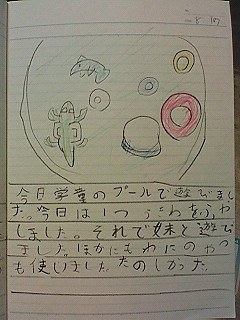 今日学童のプールで遊びまし
た。今日は1つうきわをふや
しました。それで妹と遊び
ました。ほかにもわにのやつ
も使いました。たのしかった。